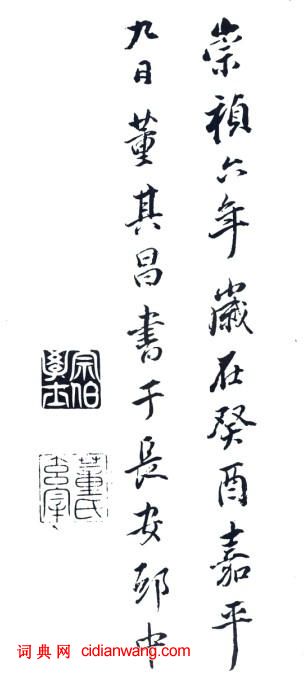 崇禎六年歲在癸酉嘉平
九日董其昌書于長安邸中
宗伯學士
董氏玄宰
词典网 cidianwang.com